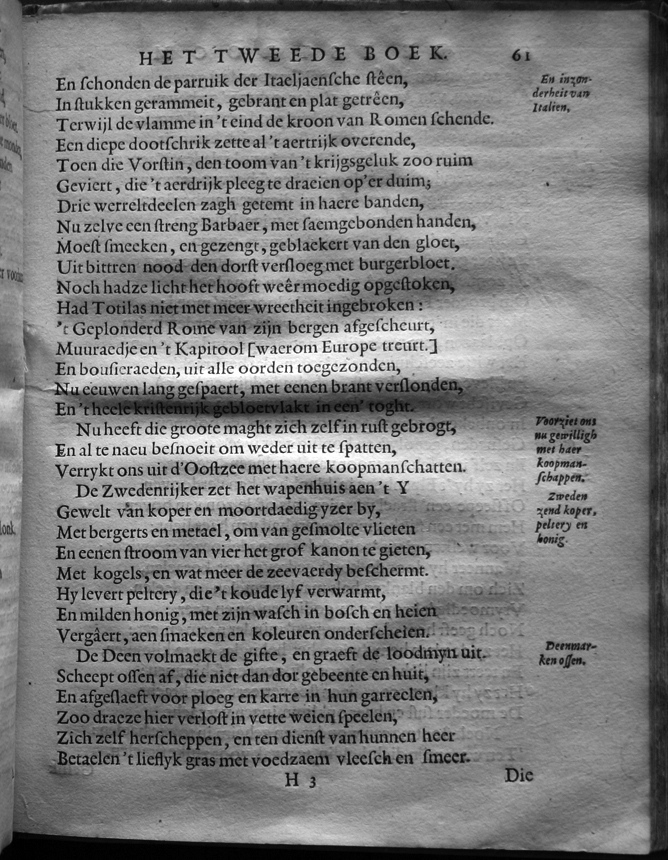 HET TWEEDE BOEK. 61
En ſchonden de parruik der Itaeljaenſche ſtêen,
In ſtukken gerammeit, gebrant en plat getrêen,
Terwijl de vlamme in 't eind de kroon van Romen ſchende.
Een diepe dootſchrik zette al 't aertrijk overende,
Toen die Vorſtin, den toom van 't krijgsgeluk zoo ruim
Geviert, die 't aerdrijk pleeg te draeien op'er duim;
Drie werreltdeelen zagh getemt in haere banden,
Nu zelve een ſtreng Barbaer, met ſaemgebonden handen,
Moeſt ſmeeken, en gezengt, geblaekert van den gloet,
Uit bittren nood den dorſt verſloeg met burgerbloet.
Noch hadze licht het hooft weêr moedig opgeſtoken,
Had Totilas niet met meer wreetheit ingebroken:
't Geplonderd Rome van zijn bergen afgeſcheurt,
Muuraedje en 't Kapitool [waerom Europe treurt.]
En bouſieraeden, uit alle oorden toegezonden,
Nu eeuwen lang geſpaert, met eenen brant verſlonden,
En 't heele kriſtenrijk gebloetvlakt in een' toght.
Nu heeft die groote maght zich zelf in ruſt gebrogt,
En al te naeu beſnoeit om weder uit te ſpatten,
Verrykt ons uit d'Ooſtzee met haere koopmanſchatten.
De Zwedenrijker zet het wapenhuis aen 't Y
Gewelt van koper en moortdaedig yzer by,
Met bergerts en metael, om van geſmolte vlieten
En eenen ſtroom van vier het grof kanon te gieten,
Met kogels, en wat meer de zeevaerdy beſchermt.
Hy levert peltery, die 't koude lyf verwarmt,
En milden honig, met zijn waſch in boſch en heien
Vergâert, aen ſmaeken en koleuren onderſcheien.
De Deen volmaekt de gifte, en graeft de loodmyn uit.
Scheept oſſen af, die niet dan dor gebeente en huit,
En afgeſlaeft voor ploeg en karre in hun garreelen,
Zoo draeze hier verloſt in vette weien ſpeelen,
Zich zelf herſcheppen, en ten dienſt van hunnen heer
Betaelen 't lieflyk gras met voedzaem vleeſch en ſmeer.
H 3 Die
En inzon-
derheit van
Italien.
Voorziet ons
nu gewilligh
met haer
koopman-
ſchappen.
Zweden
zend koper,
peltery en
honig.
Deenmar-
ken oſſen.